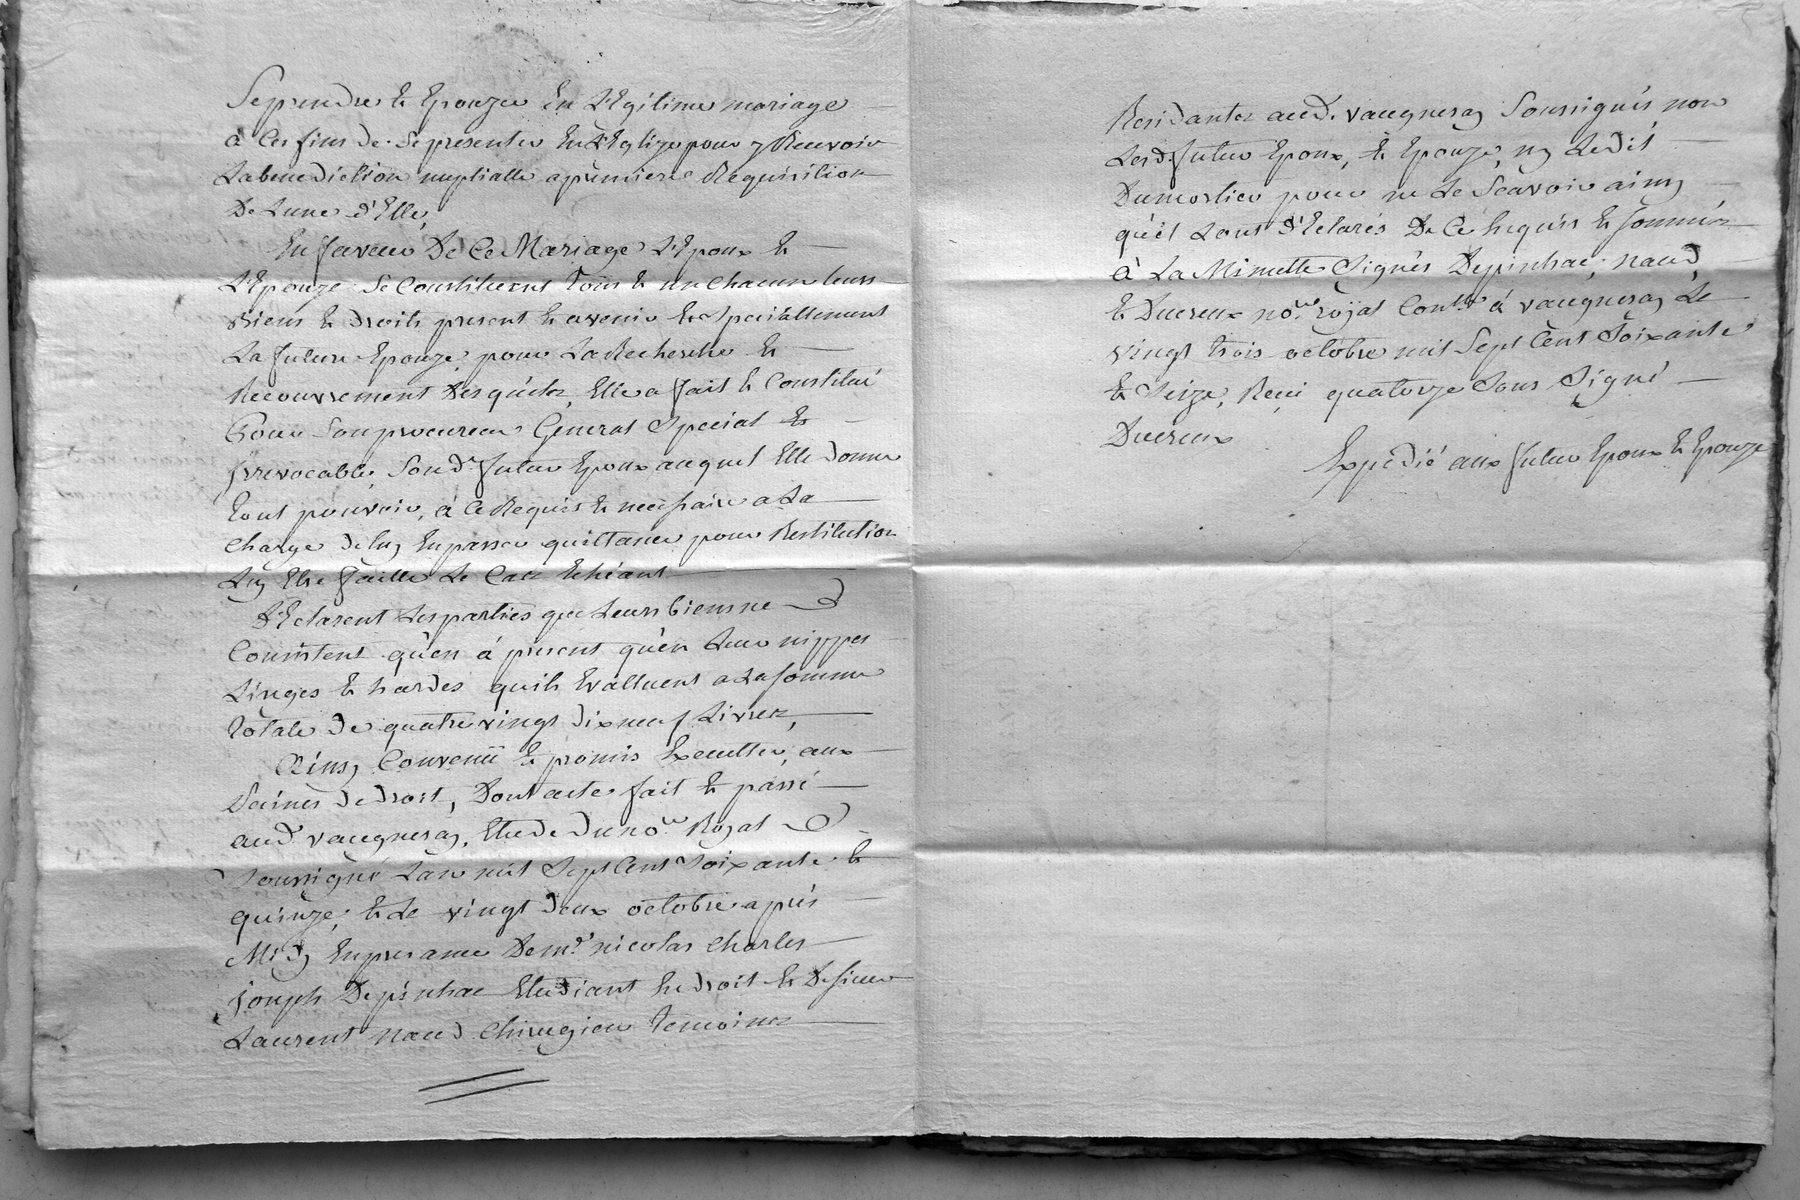 Seprendre & Epouzer En L'Egitime mariage
à Ces fins de Sepresenter En L'Eglize pour y Recevoir
Labenediction nuptialle apremiere Requisition
De Lune d'Elle,
En faveur De Ce Mariage L'Epoux &
L'Epouze Se Constituent Tous & un chacun leurs
Biens & droits present & avenir & Speciallement
La future Epouze, pour La Recherche &
Recouvrement Desquels, Elle a fait & Constitué
Pour Sonprocureur General Special &
Irrevocable, Son d. futur Epoux auquel Elle donne
tout pouvoir, à Ce Requis & necessaire a La
charge deluy En passer quittance pour Restitution
Luy Etre faitte Le Cas Echéant
D'Eclarent Lesparties que Leurs biens ne
Consistent qu'en á present qu'en Leur nippes
Linges & hardes quils Evalluent a La somme
Totale de quatrevingt dixneuf Livres,
Ainsy Convenü & promis Executter, aux
Peines de droit, Dont acte fait & passé
aud. vaugneray, Etude du no.re Royal
soussigné Lan mil Sept Cent Soixante &
quinze, & Le vingt deux octobre après
Midy En presance De m.r nicolas Charles
joseph Depinhac Etudiant En droit & De sieur
Laurent naud Chirugien temoins
Residantes aud. vaugneray Soussignés non
Lesd. futur Epoux, & Epouze, ny Ledit
Dumortier pour ne Le Scavoir ainsy
qu'il Lont d'Eclarés De Ce Enquis & sommés
à La Minutte Signés Depinhac, naud,
& Ducreux no.re royal Con.lé à vaugneray Le
vingt trois octobre mil Sept Cent Soixante
& Seize, Reçu quatorze Sous Signé
Ducreux
Expédié aux futur Epoux & Epouze